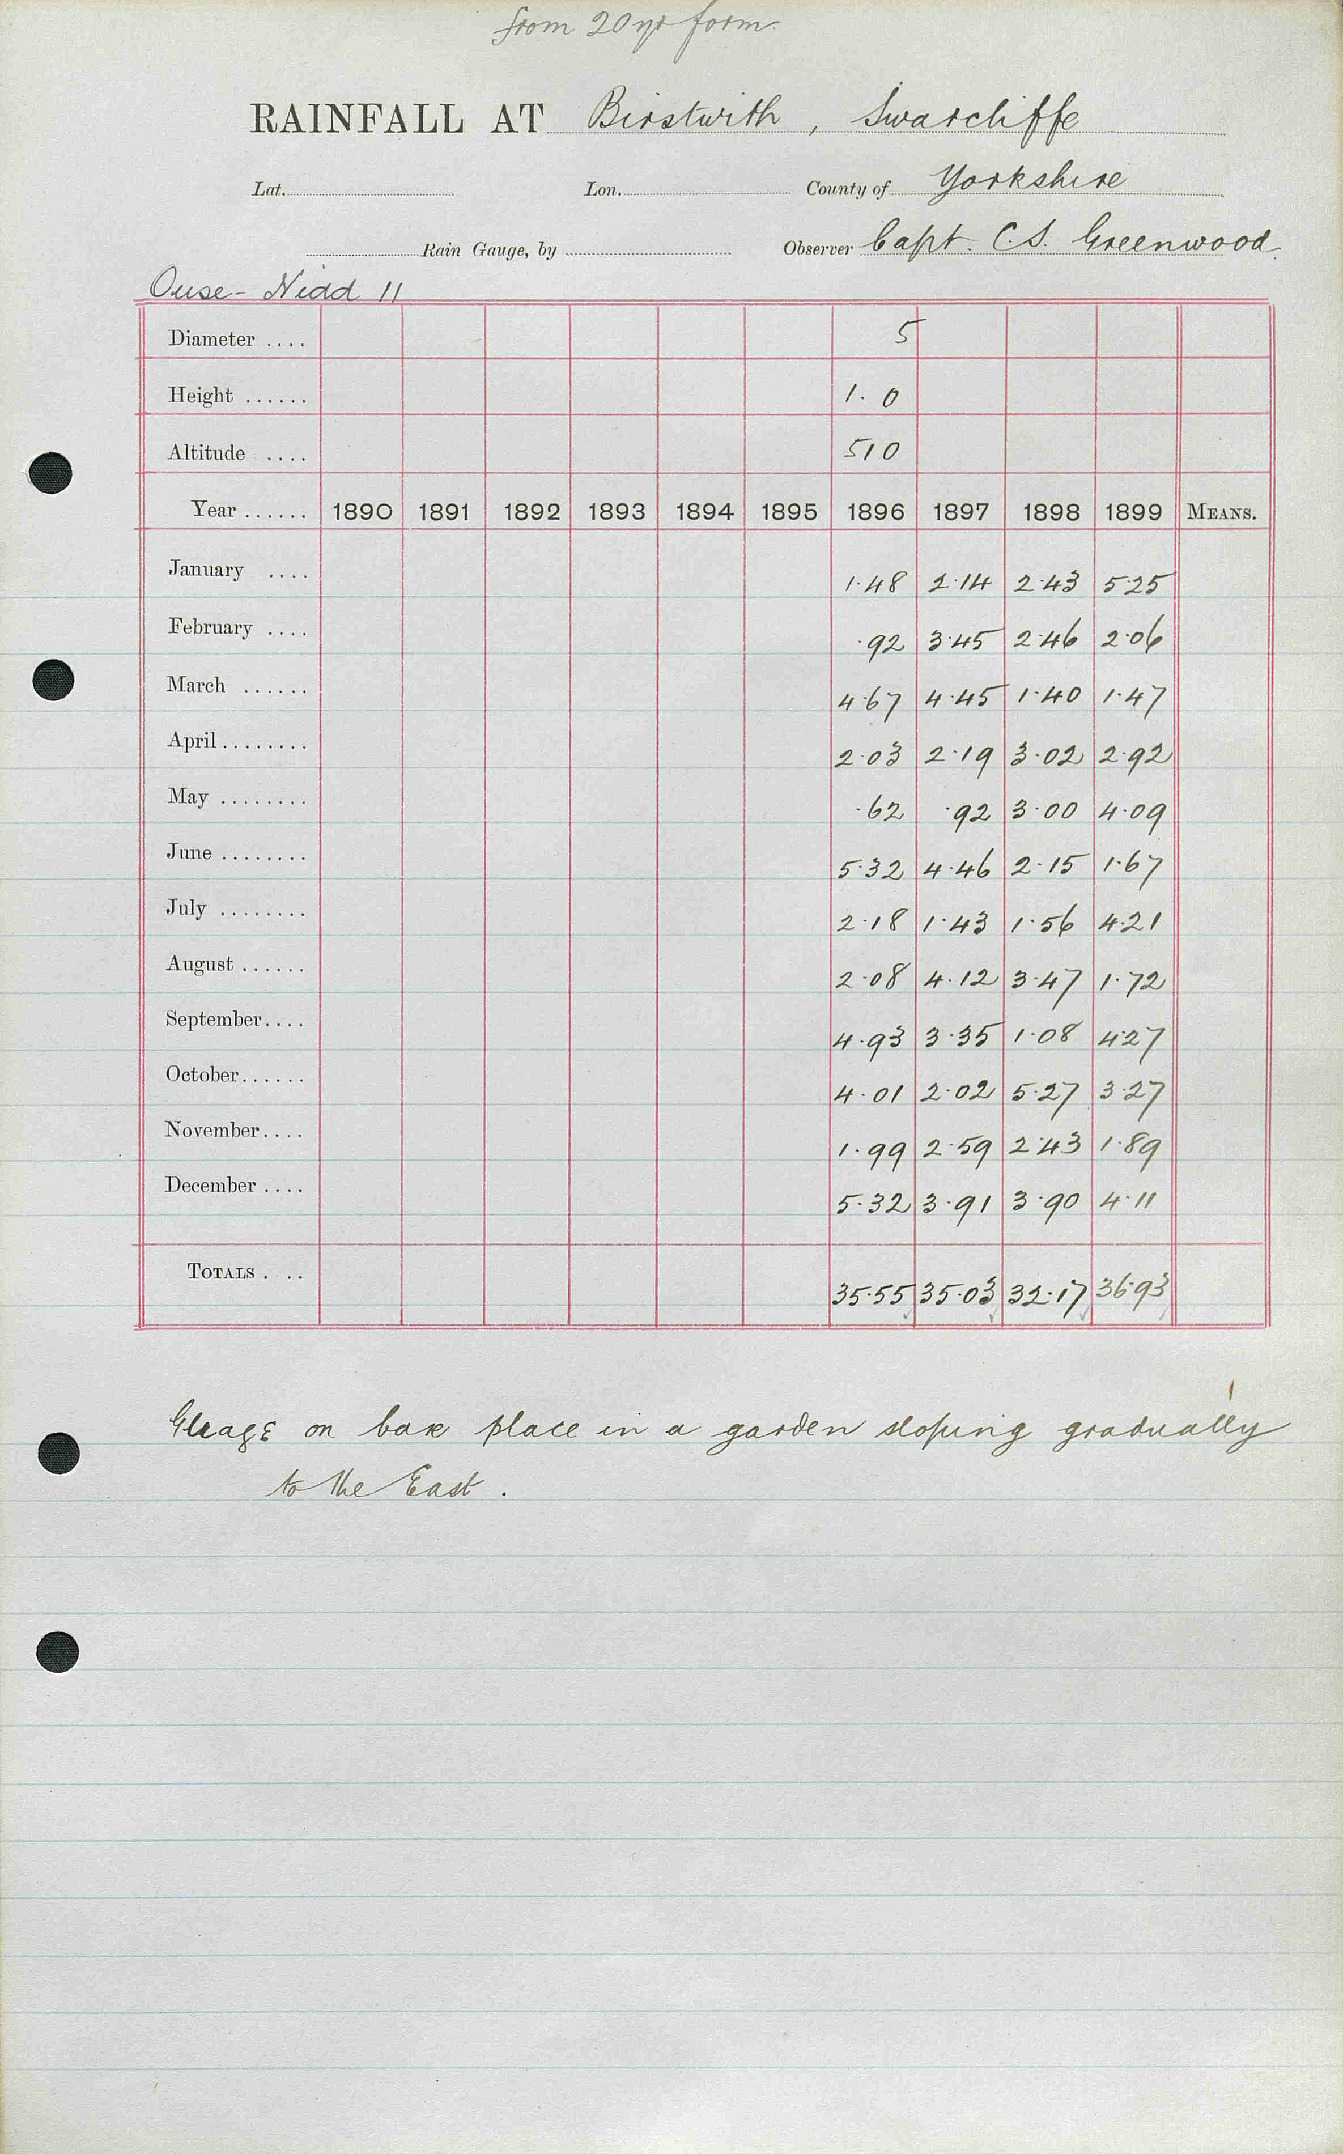 from 20 yr form.
RAINFALL AT Birstwith, Swarcliffe
Lat. Lon. County of Yorkshire
Rain Gauge, by Observer Capt. C.S. Greenwood.
Ouse - Nidd 11
Diameter .... 5
Height ...... 1.0
Altitude .... 510
Year ...... 1890 1891 1892 1893 1894 1895 1896 1897 1898 1899 MEANS.
January .... 1.48 2.14 2.43 5.25
February .... .92 3.45 2.46 2.06
March ...... 4.67 4.45 1.40 1.47
April ........ 2.03 2.19 3.02 2.92
May ........ .62 .92 3.00 4.09
June ........ 5.32 4.46 2.15 1.67
July ........ 2.18 1.43 1.56 4.21
August ...... 2.08 4.12 3.47 1.72
September .... 4.93 3.35 1.08 4.27
October ...... 4.01 2.02 5.27 3.27
November .... 1.99 2.59 2.43 1.89
December .... 5.32 3.91 3.90 4.11
TOTALS . .. 35.55 35.03 32.17 36.93
on bare place in a garden sloping gradually
to the East.